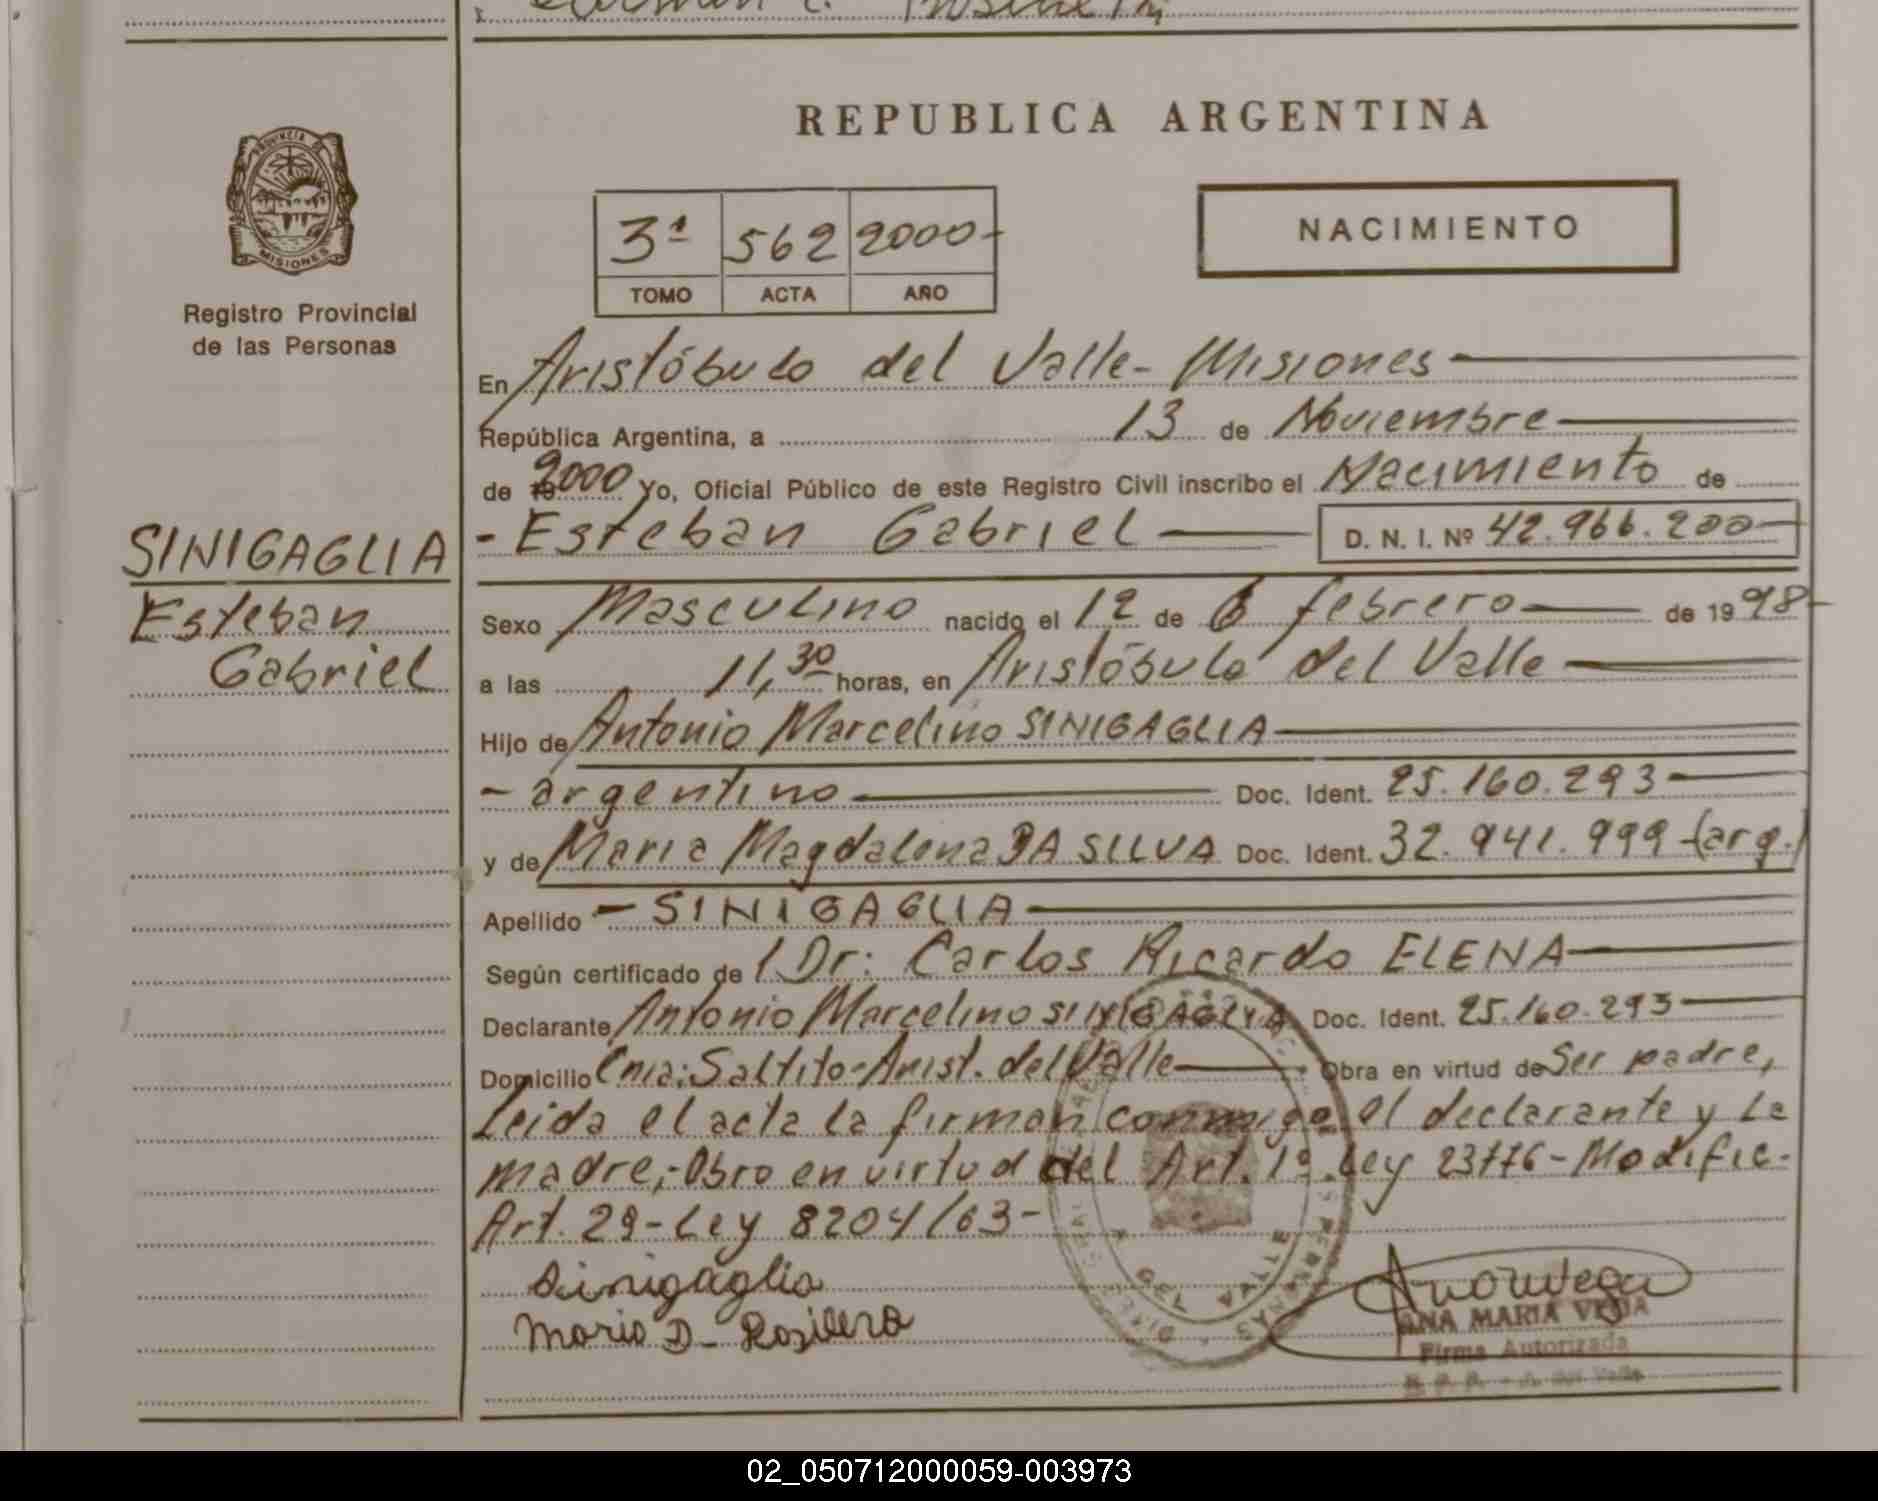 REPUBLICA ARGENTINA
PROVINCIA DE
MISIONES
Registro Provincial
de las Personas
3ª 562 2000-
TOMO ACTA AÑO
NACIMIENTO
En Aristóbulo del Valle- Misiones
República Argentina, a 13 de Noviembre
de 2000 Yo, Oficial Público de este Registro Civil inscribo el Nacimiento de
- Esteban Gabriel D. N. I. Nº 42.966.200-
SINIGAGLIA
Esteban
Gabriel
Sexo Masculino nacido el 12 de febrero de 1998-
a las 11,30 horas, en Aristóbulo del Valle
Hijo de Antonio Marcelino SINIGAGLIA
- argentino Doc. Ident. 25.160.293-
y de Maria Magdalena DA SILVA Doc. Ident. 32.941.999-(arg.)
Apellido - SINIGAGLIA
Según certificado de Dr: Carlos Ricardo ELENA
Declarante Antonio Marcelino SINIGAGLIA Doc. Ident. 25.160.293
Domicilio Cnia: Saltito-Arist. del Valle Obra en virtud de Ser padre,
Leida el acta la firman conmigo el declarante y la
madre;-Obro en virtud del Art. 1º Ley 23776-Modific-
Art. 29-Ley 8204/63-
Sinigaglia
ANA MARIA VEGA
Firma Autorizada
02_050712000059-003973